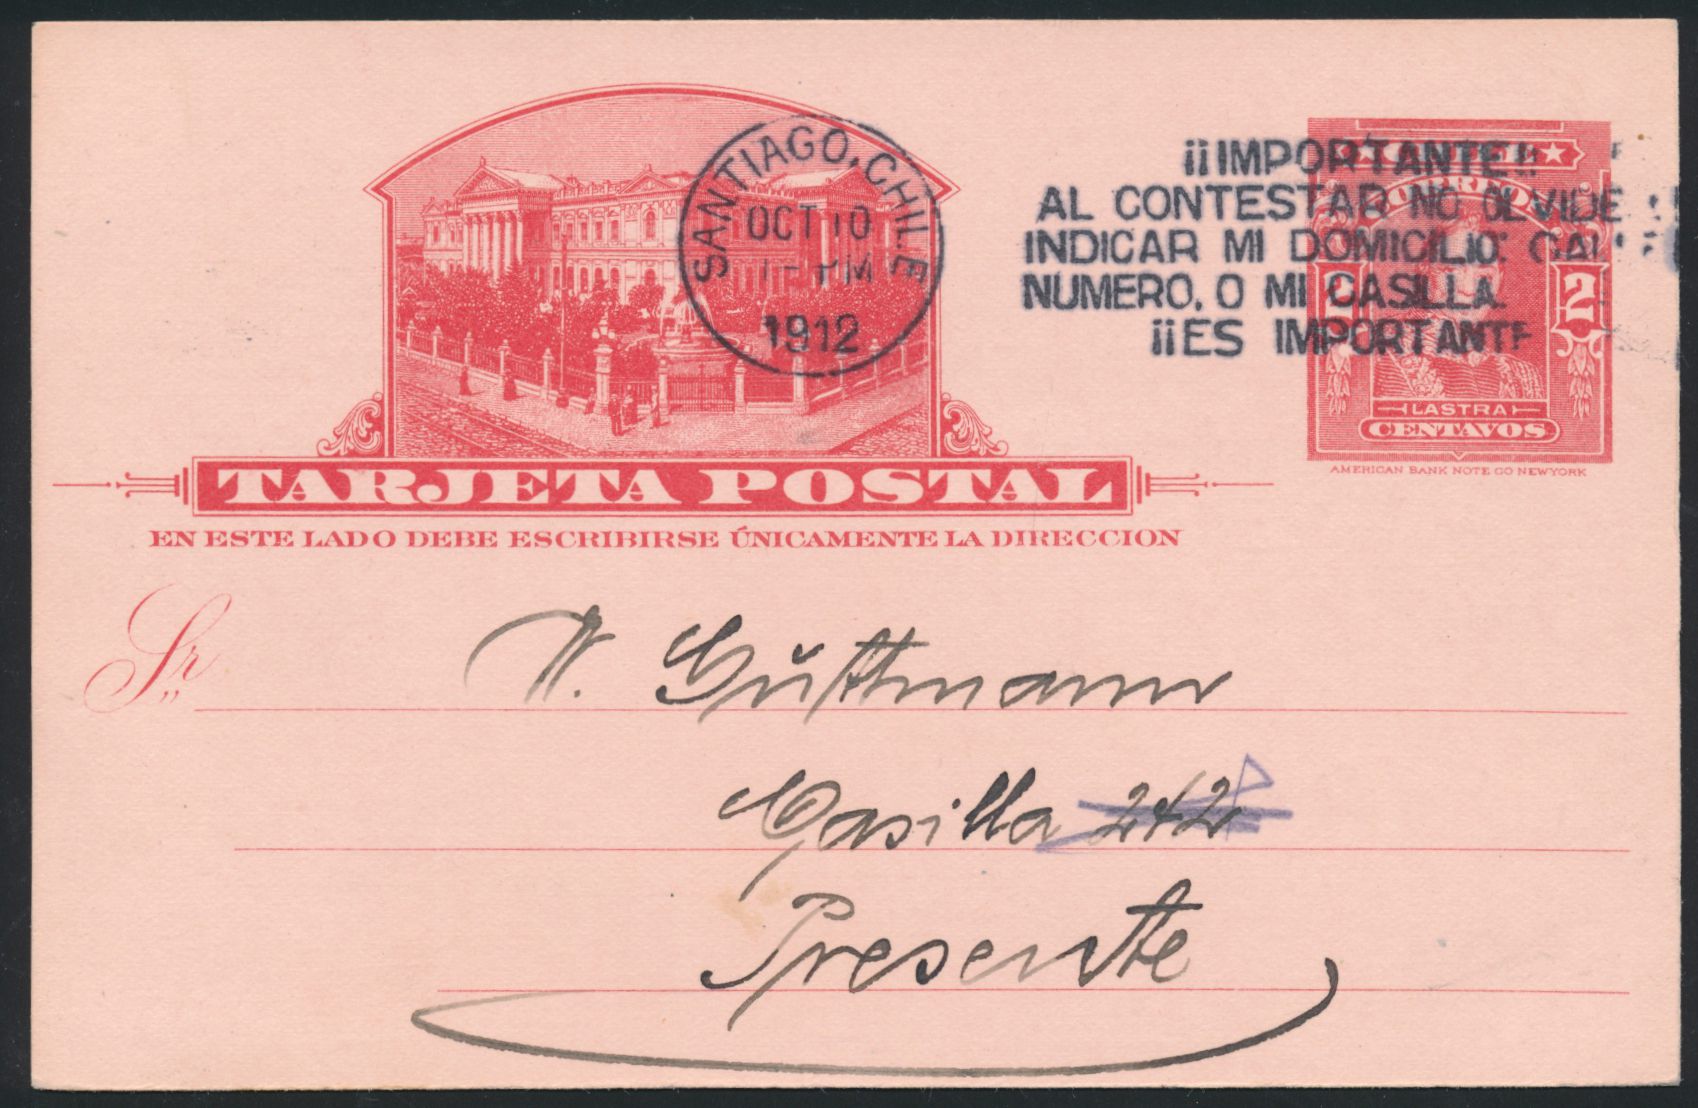 SANTIAGO, CHILE
OCT 10
PM
1912
¡¡IMPORTANTE!!
AL CONTESTAR NO OLVIDE
INDICAR MI DOMICILIO:
NUMERO, O MI CASILLA.
¡¡ES IMPORTANTE
2
LASTRA
CENTAVOS
AMERICAN BANK NOTE CO NEW YORK
TARJETA POSTAL
EN ESTE LADO DEBE ESCRIBIRSE ÚNICAMENTE LA DIRECCION
Sr
Guttmann
Casilla 242
Presente